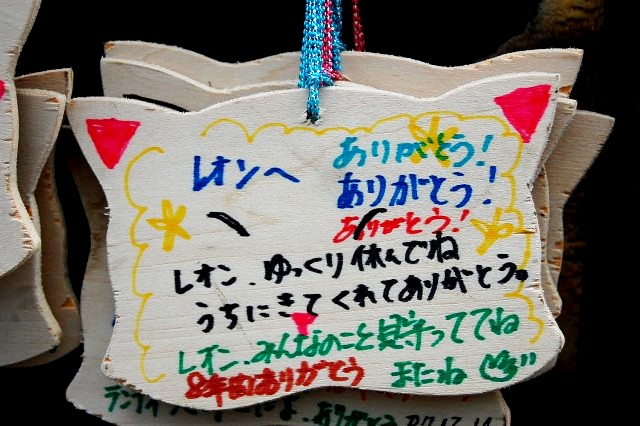 レオンへ
ありがとう!
ありがとう!
ありがとう!
レオン、ゆっくり休んでね
うちにきてくれてありがとう。
レオン、みんなのこと見守っててね
8年間ありがとう またね